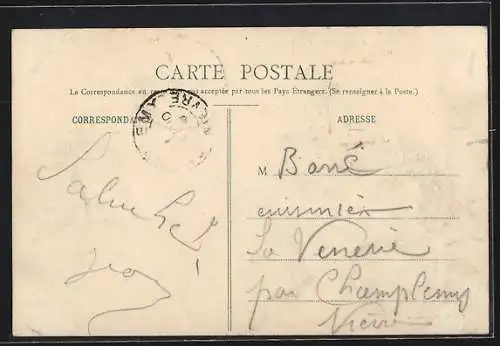 CARTE POSTALE
La Correspondance en acceptée par tous les Pays Étrangers. (Se renseigner à la Poste.)
CORRESPONDAN
ADRESSE
NIÈVRE
M Barré
cuisinier
La Vénerie
par Champlemy
Nièvre